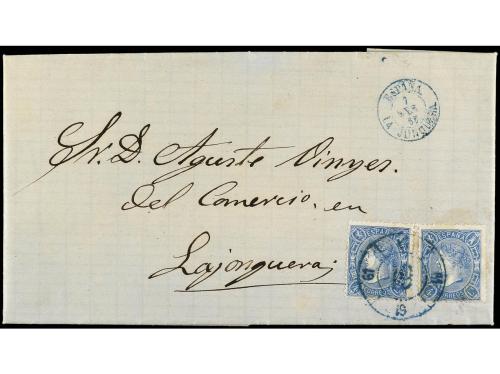 ESPAÑA
7
LA JUNQUERA
Sr. D. Aguste Vinyes.
Del Comercio. en
Lajonquera
ESPAÑA ESPAÑA
CORREOS
19